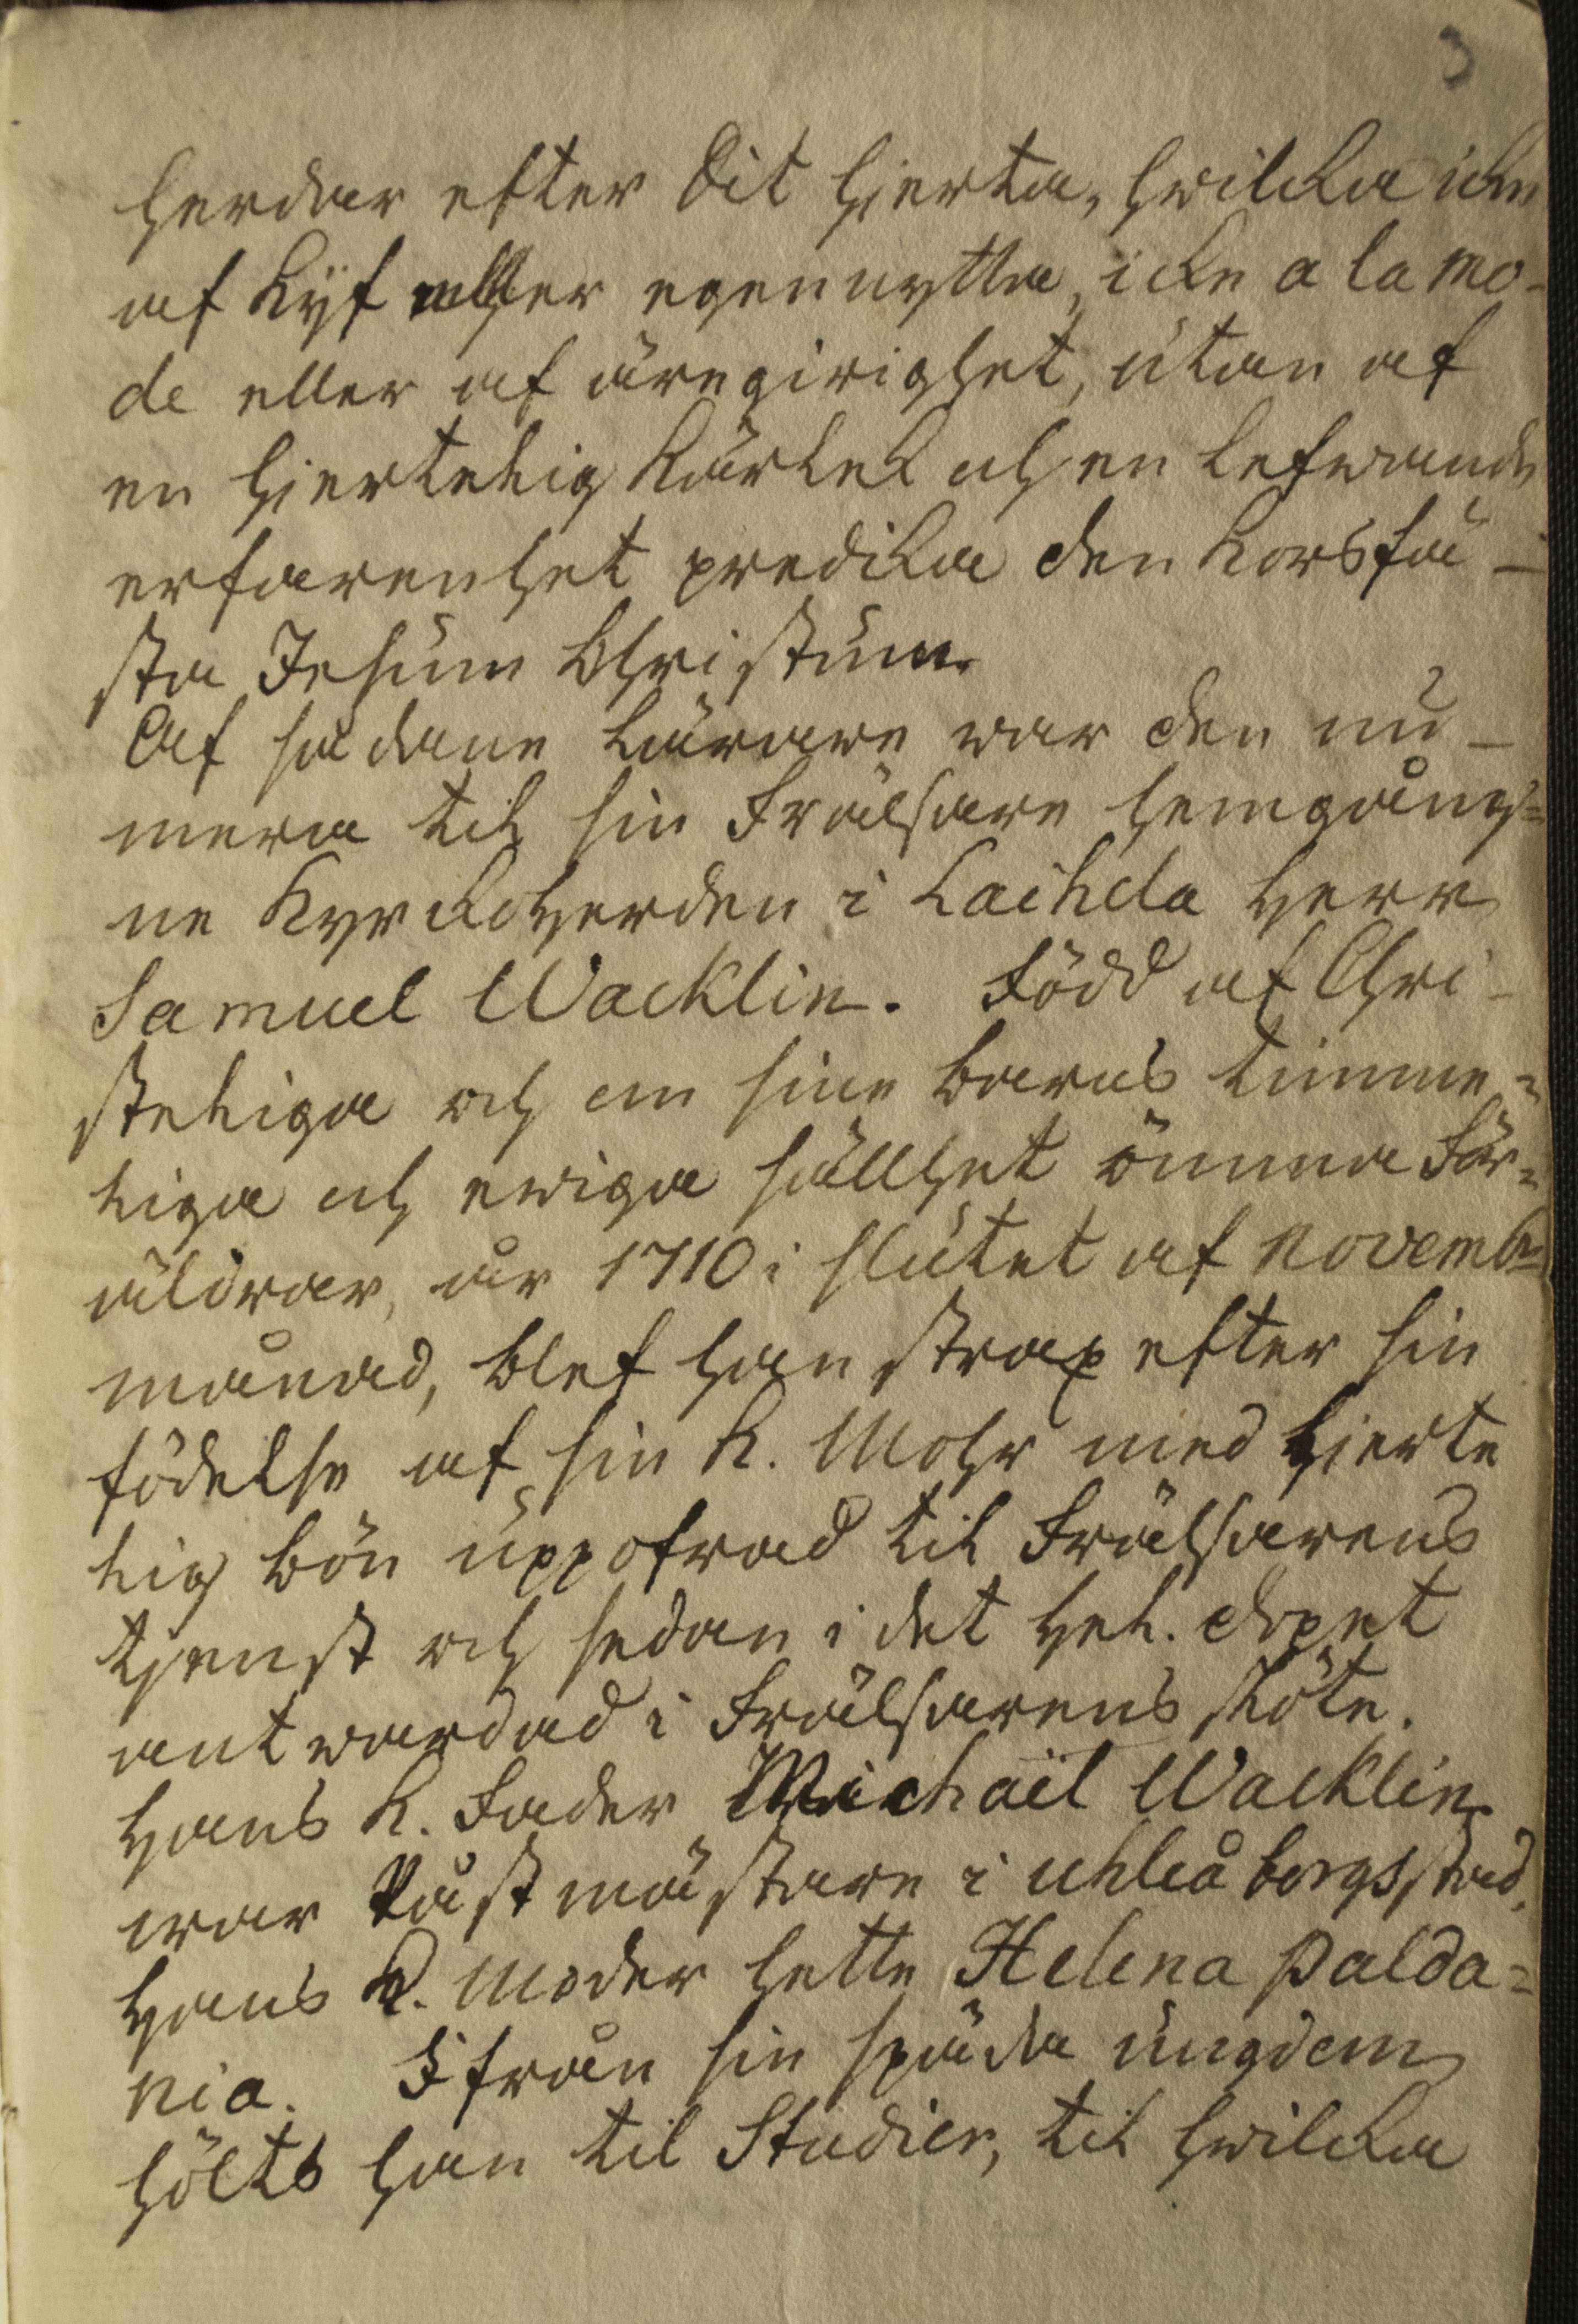 3
herdar efter Dit hjerta, hwilcka icke
af kijf eller egennytta, icke a la mo-
de eller af äregirighet, utan af
en hjertelig kärlek och en lefwande
erfarenhet predika den korsfä-
sta Jesum Christum
Af sådane lärare war den nu-
mera til sin Frälsare hemgång=
ne Kyrckoherden i Laihela Herr
Samuel Wacklin. Född af Chri-
steliga och om sine barns timme=
liga och ewiga sällhet ömma För=
äldrar, år 1710 i slutet af Novemb=
månad, blef han strax efter sin
födelse af sin K. Mohr med hjerte
lig bön uppofrad til Frälsarens
tjenst och sedan i det hel. dopet
antwardad i Frälsarens sköte.
Hans K. Fader Michaël Wacklin
war Påstmästare i Uhleåborgs stad.
Hans K. Moder hette Helena Palda=
nia. Ifrån sin späda ungdom
hölts han til Studier, til hwilcka